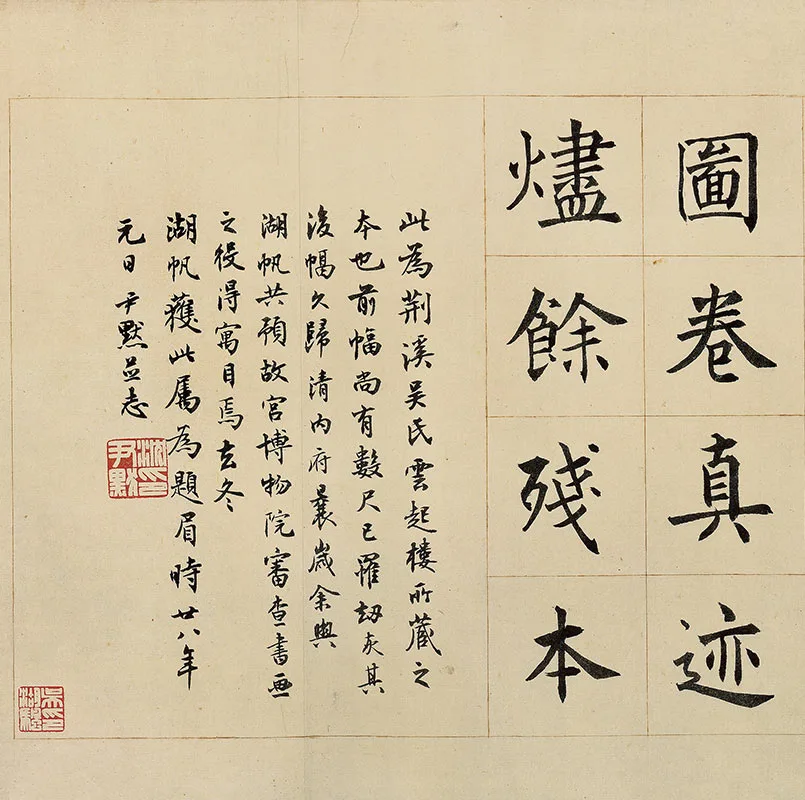 圖卷真迹
燼餘殘本
此為荆溪吴氏雲起樓所藏之
本也前幅尚有數尺已罹劫灰其
後幅久歸清内府曩歲余與
湖帆共預故宫博物院審查書画
之役得寓目焉去冬
湖帆獲此屬為題眉時廿八年
元日尹默並志
沈尹默印